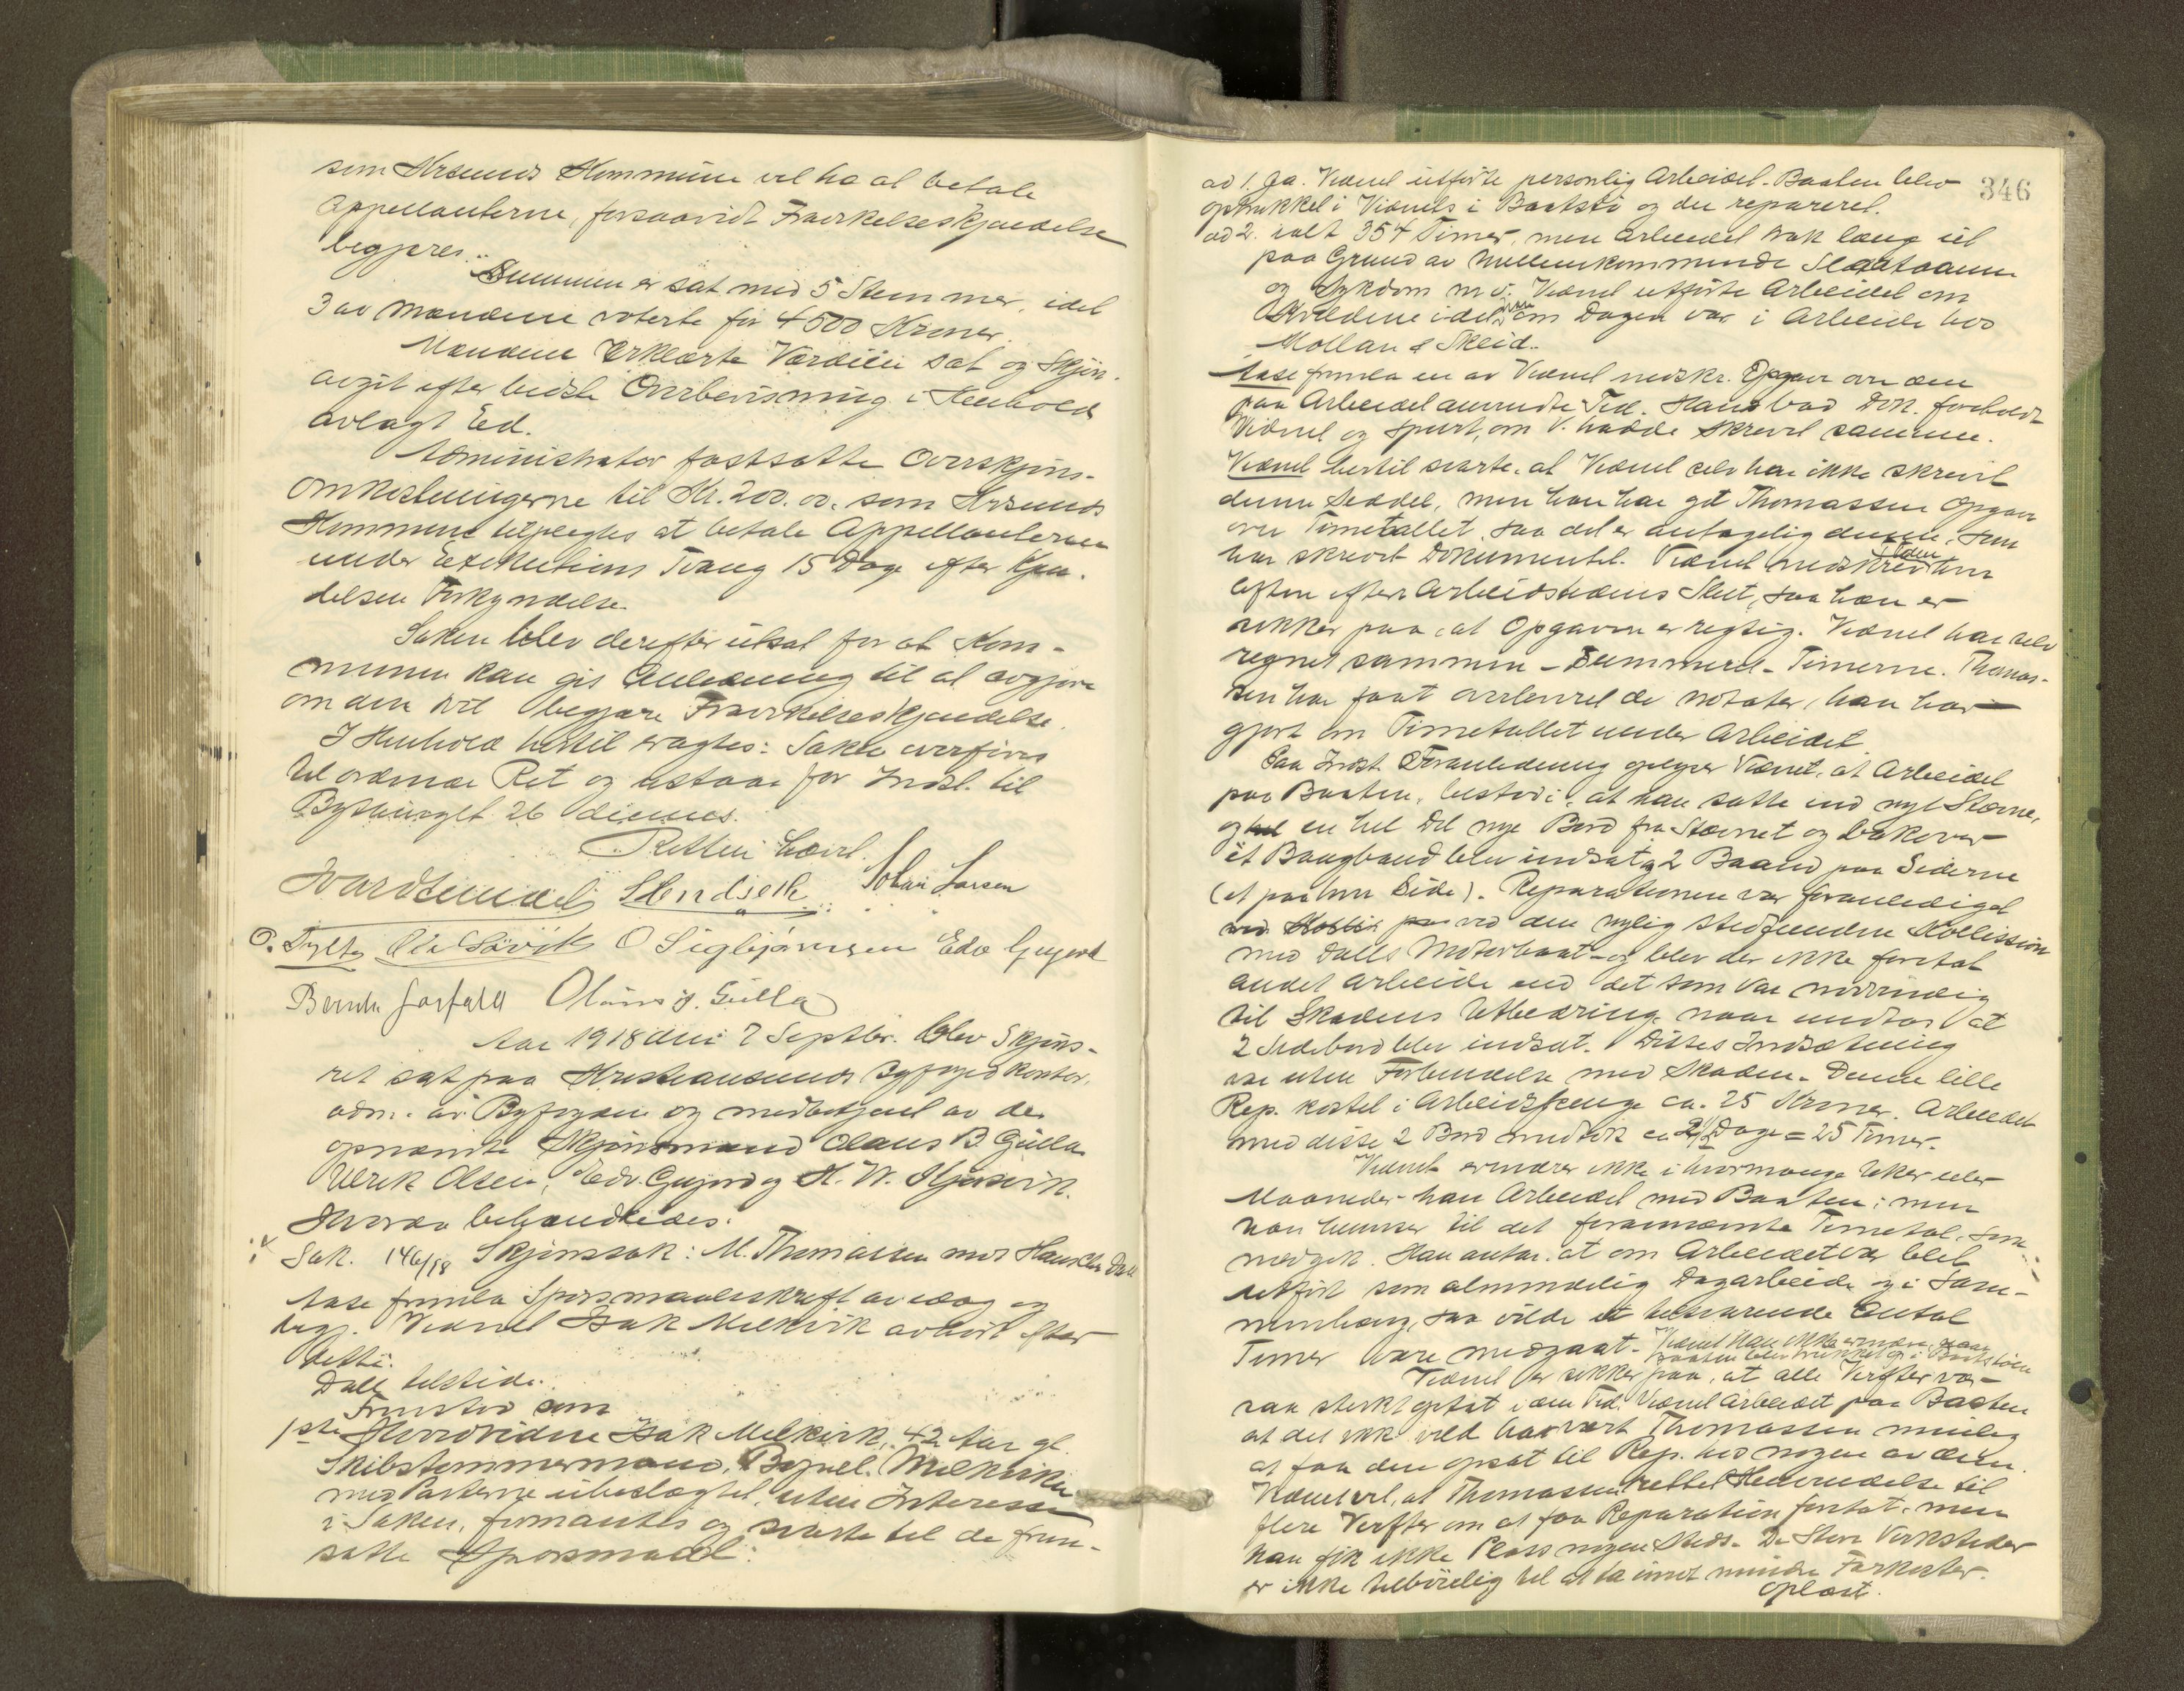 som Krsunds Kommune vil ha at betale
Appellanterne, forsaavidt Fravikelseskjendelse
begjæres.
Summen er sat med 5 Stemmer, idet
3 av Mændene voterte for 4500 Kroner.
Mændene erklærte Værdien sat og Skjøn
avgit efter bedste Overbevisning i Henhold
avlagt Ed.
Administrator fastsatte Overskjøns-
omkostningerne til Kr. 200.00, som Krsunds
Kommune tilpligtes at betale Appellanterne
under Exekutions Tvang 15 Dage efter Kjen-
delsens Forkyndelse.
Saken blev derefter utsat for at Kom-
munen kan gis Anledning til at avgjøre
om den vil begjære Fravikelseskjendelse.
I Henhold hertil eragtes: Saken overføres
til ordinær Ret og utstaar for Indst. til
Bythinget 26 dennes.
Retten hævet.
Johan Larsen
O. Tylty Ole Løvik O Sigbjørnsen Edv Gujord
Olaus J. Gulla
Aar 1918 den 7 Septbr. blev Skjøns-
ret sat paa Kristiansunds Byfogedkontor,
adm. av Byfogden og medbetjent av de
opnævnte Skjønsmænd Olaus B Gulla
Ulrik Olsen, Edv. Gujord og H. W.
Hvorda behandledes:
Sak. 146/18 Skjønssak: M. Thomassen mot Hans Chr. Dall
Aase fremla Spørsmaalsskrift av idag og
begj. Vidnet Isak Melkvik avhørt efter
dette.
Dall tilstede.
Fremstod som
1ste Hovedvidne Isak Melkvik, 42 Aar gl.
Skibstømmermand, Melkvik
med Parterne ubeslægtet, uten Interesse
i Saken, formantes og svarte til de frem-
satte Spørsmaal:
346
ad 1. Ja. Vidnet utførte personlig Arbeidet. Baaten blev
optrukket i Vidnets i Baatstø og der reparert.
ad 2. ialt 354 Timer, men Arbeidet trak længe ut
paa Grund av mellemkommende
og Sykdom m v. Vidnet utførte Arbeidet om
Kvældene idet han om Dagen var i Arbeide hos
Mollan & Skeid.
Aase fremla en av Vidnet nedskr. Opgave over den
paa Arbeidet anvendte Tid. Hans bad Dok. foreholdt
Vidnet og spurt, om V. hadde skrevet samme.
Vidnet hertil svarte, at Vidnet selv har ikke skrevet
denne Seddel, men han har git Thomassen Opgave
over Timetallet, saa det er antagelig denne, som
har skrevet Dokumentet. Vidnet nedskrev Tiden hver
Aften efter Arbeidstidens Slut, saa han er
sikker paa, at Opgaven er rigtig. Vidnet har selv
regnet sammen - Summeret - Timerne. Thomas-
sen har faat overlevert de notater, han har
gjort om Timetallet under Arbeidet.
Paa Indst. Foranledning oplyser Vidnet, at Arbeidet
paa Baaten, bestod i, at han satte ind nyt Stævne,
og en hel Del nye Bord fra Stævnet og bakover
et Baugbaand blev indsat og 2 Baand paa Siderne
(et paa hver Side). Reparationen var foranlediget
ved den nylig stedfundne Kollission
med Dalls Motorbaat - og blev der ikke foretat
andet Arbeide end det som var nødvendig
til Skadens Utbedring naar undtas at
2 Sidebord blev indsat. Disses Indsætning
var uten Forbindelse med Skaden. Denne lille
Rep. kostet i Arbeidspenge ca. 25 Kroner. Arbeidet
med disse 2 Bord medtok ca 2½ Dage = 25 Timer.
Vidnet erindrer ikke i hvormange Uker eller
Maaneder han arbeidet med Baaten; men
han henviser til det forannævnte Timetal, som
medgik. Han antar, at om Arbeidet var blit
utført som almindelig Dagarbeide og i Sam-
menhæng, saa vilde et tilsvarende Antal
Timer være medgaat. Vidnet kan ikke erindre, naar
Baaten blev trukket op i Baatstøen
Vidnet er sikker paa, at alle Verfter var
saa sterkt optat i den Tid, Vidnet arbeidet paa Baaten
at det ikke vilde ha været Thomassen mulig
at faa den opsat til Rep. hos nogen av dem.
Vidnet vet, at Thomassen rettet Henvendelse til
flere Verfter om at faa Reparation foretat, men
han fik ikke Plass nogen Steds. De større Verksteder
er ikke tilbøielig til at ta imot mindre Farkoster.
Oplæst.